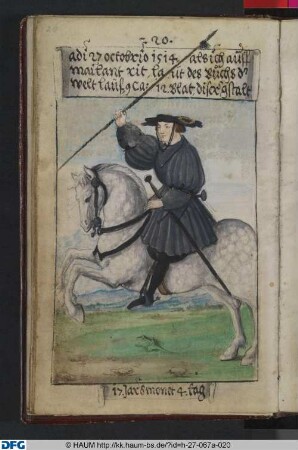 20.
adi 27 octobrio 1514 als ich auss
mailant rit laut des buchs der
welt lauf 9 Ca: 12 blat diser gstalt
17 Jar 8 monet 4. tag
DFG
© HAUM http://kk.haum-bs.de/?id=h-27-067a-020